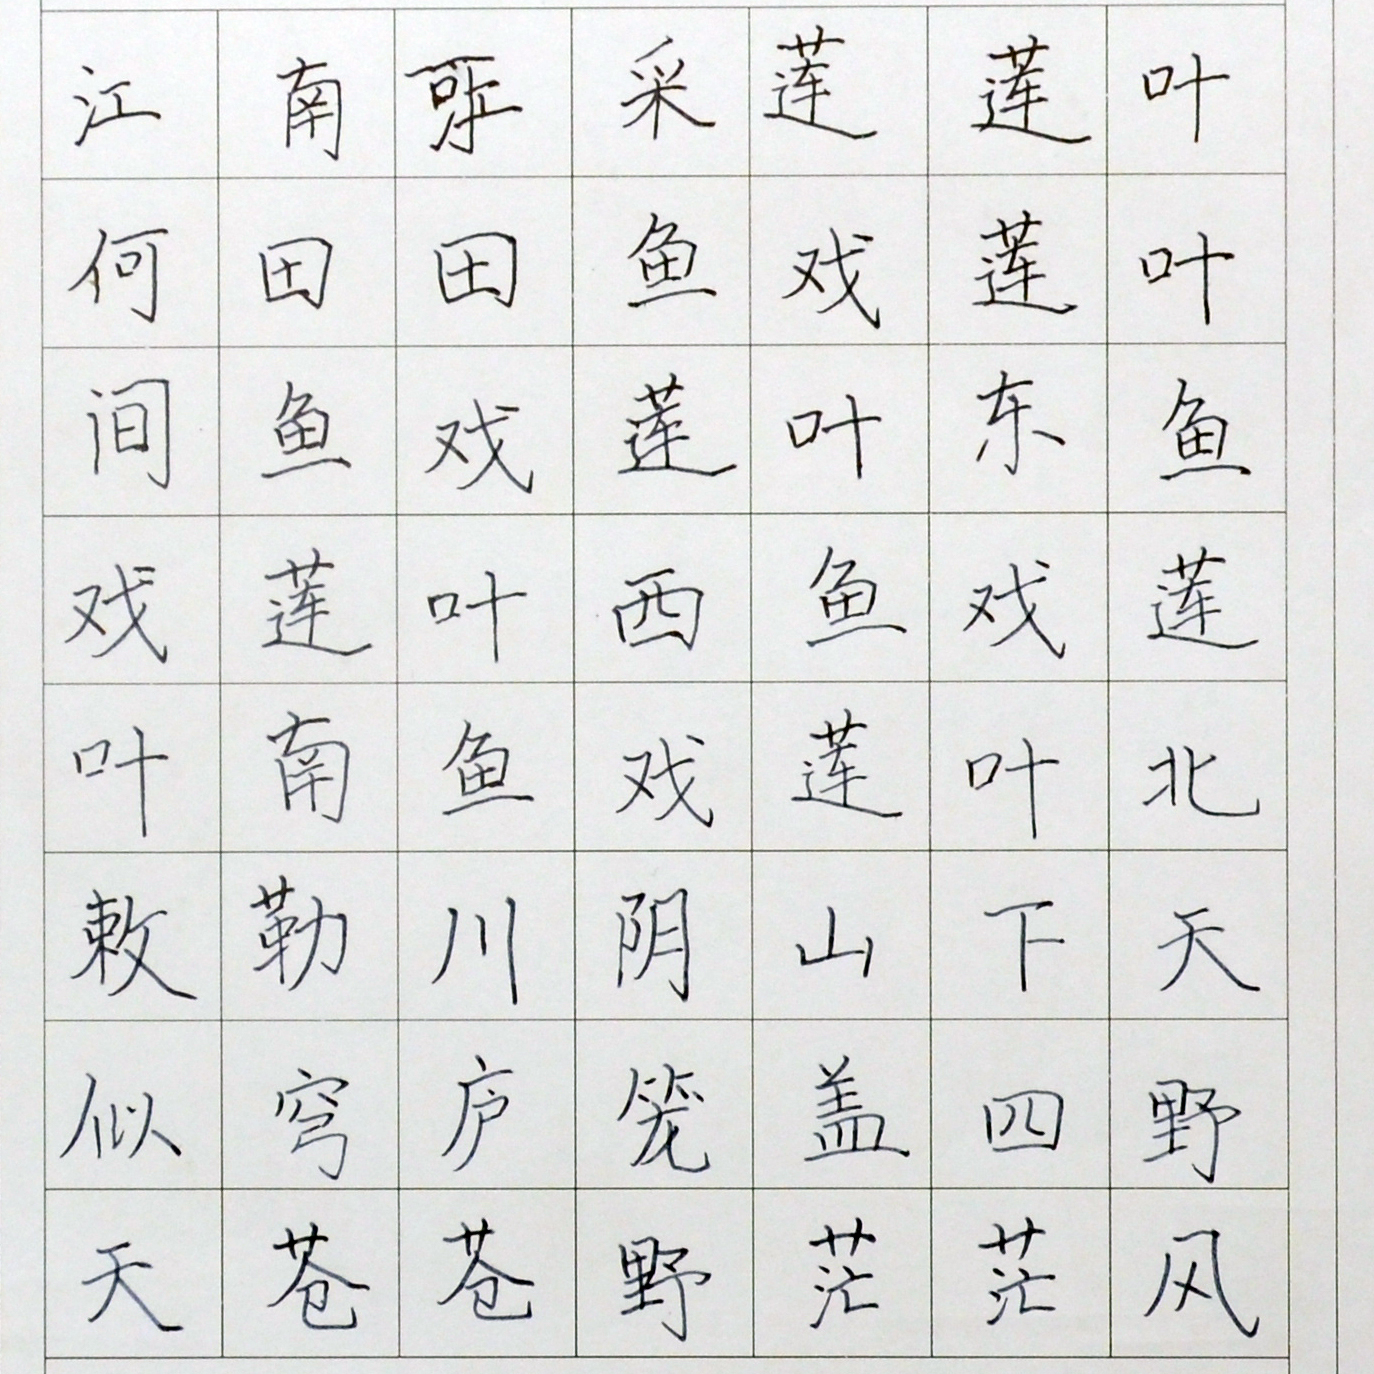 江南可采莲莲叶
何田田鱼戏莲叶
间鱼戏莲叶东鱼
戏莲叶西鱼戏莲
叶南鱼戏莲叶北
敕勒川阴山下天
似穹庐笼盖四野
天苍苍野茫茫风